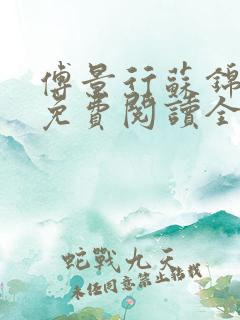 傅景行蘇錦
免費閱讀全
蛇戰九天
未經同意禁止轉載